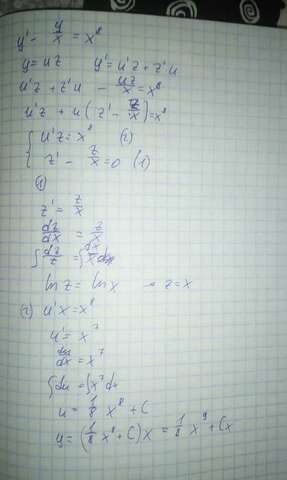 y' - y/x = x⁸
y = uz y' = u'z + z'u
u'z + z'u - uz/x = x⁸
u'z + u(z' - z/x) = x⁸
{ u'z = x⁸ (2)
{ z' - z/x = 0 (1)
(1)
z' = z/x
dz/dx = z/x
∫ dz/z = ∫ dx/x
ln z = ln x → z = x
(2) u'x = x⁸
u' = x⁷
du/dx = x⁷
∫du = ∫x⁷dx
u = 1/8 x⁸ + C
y = (1/8 x⁸ + C)x = 1/8 x⁹ + Cx